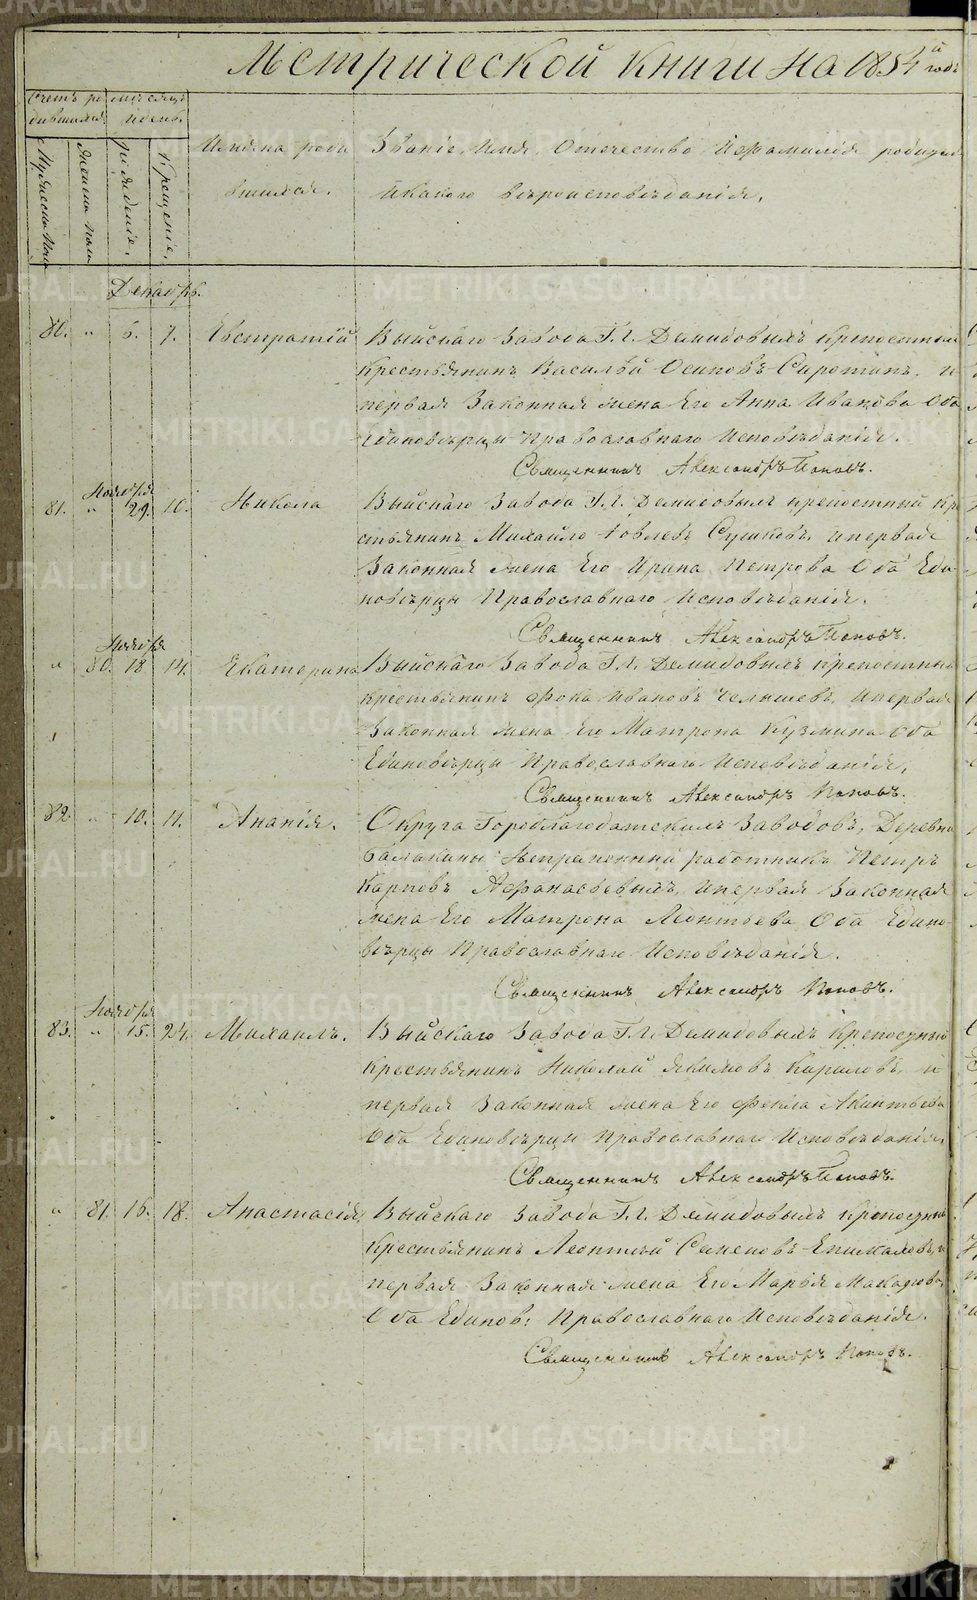 Метрической книги на 1854й годъ
Счетъ родившихся.
Мужеска пола
Женска пола
Месяцъ и день.
рожденія.
крещенія.
Имяна родившихся.
Званіе, Имя, Отечество и Фамилія родител
и какого вѣроисповѣданія.
Декабрь.
80. " 6. 7. Евстратій Выйскаго Завода Г. г. Демидовыхъ крепостный
крестьянинъ Василій Осиповъ Сиротинъ, и
первая Законная жена Его Анна Иванова Оба
Единовѣрцы Православнаго Исповѣданія.
Священникъ Александръ Поповъ.
Ноября
81. " 29. 10. Никола Выйскаго Завода Г. г. Демидовыхъ крепостный кр
стьянинъ Михайло Сушковъ, и первая
Законная жена Его Ирина Петрова Оба Еди
новѣрцы Православнаго Исповѣданія.
Священникъ Александръ Поповъ.
Ноября
" 80. 18. 14. Екатерина Выйскаго Завода Г. г. Демидовыхъ крепостный
крестьянинъ Фока Ивановъ и первая
Законная жена Его Матрона Кузмина Оба
Единовѣрцы Православнаго Исповѣданія,
Священникъ Александръ Поповъ.
82. " 10. 11. Ананія. Округа Гороблагодатскихъ Заводовъ, Деревни
Балакины работникъ Петръ
Карповъ Афанасьевыхъ, и первая Законная
жена Его Матрона Леонтьева Оба Едино-
вѣрцы Православнаго Исповѣданія.
Священникъ Александръ Поповъ.
Ноября
83. " 15. 24. Михаилъ. Выйскаго Завода Г. г. Демидовыхъ крепосный
крестьянинъ Николай Якимовъ и
первая Законная жена Его Фекла Акинтьева
Оба Единовѣрцы Православнаго Исповѣданія,
Священникъ Александръ Поповъ.
" 81. 16. 18. Анастасія Выйскаго Завода Г. г. Демидовыхъ крепосный
крестьянинъ Леонтій Семеновъ и
первая Законная жена Его Марья Макарова,
Оба Единов: Православнаго Исповѣданія.
Священникъ Александръ Поповъ.
METRIKI.GASO-URAL.RU